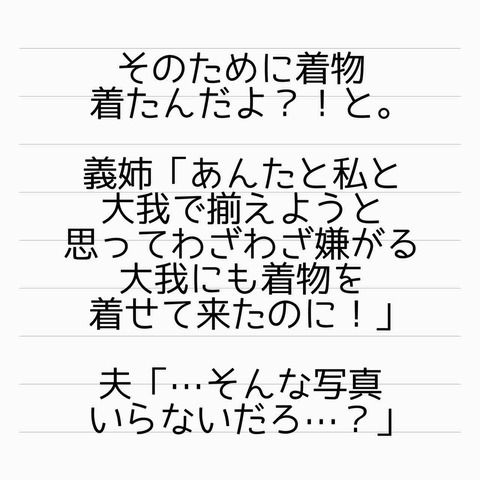 そのために着物
着たんだよ？！と。
義姉「あんたと私と
大我で揃えようと
思ってわざわざ嫌がる
大我にも着物を
着せて来たのに！」
夫「…そんな写真
いらないだろ…？」